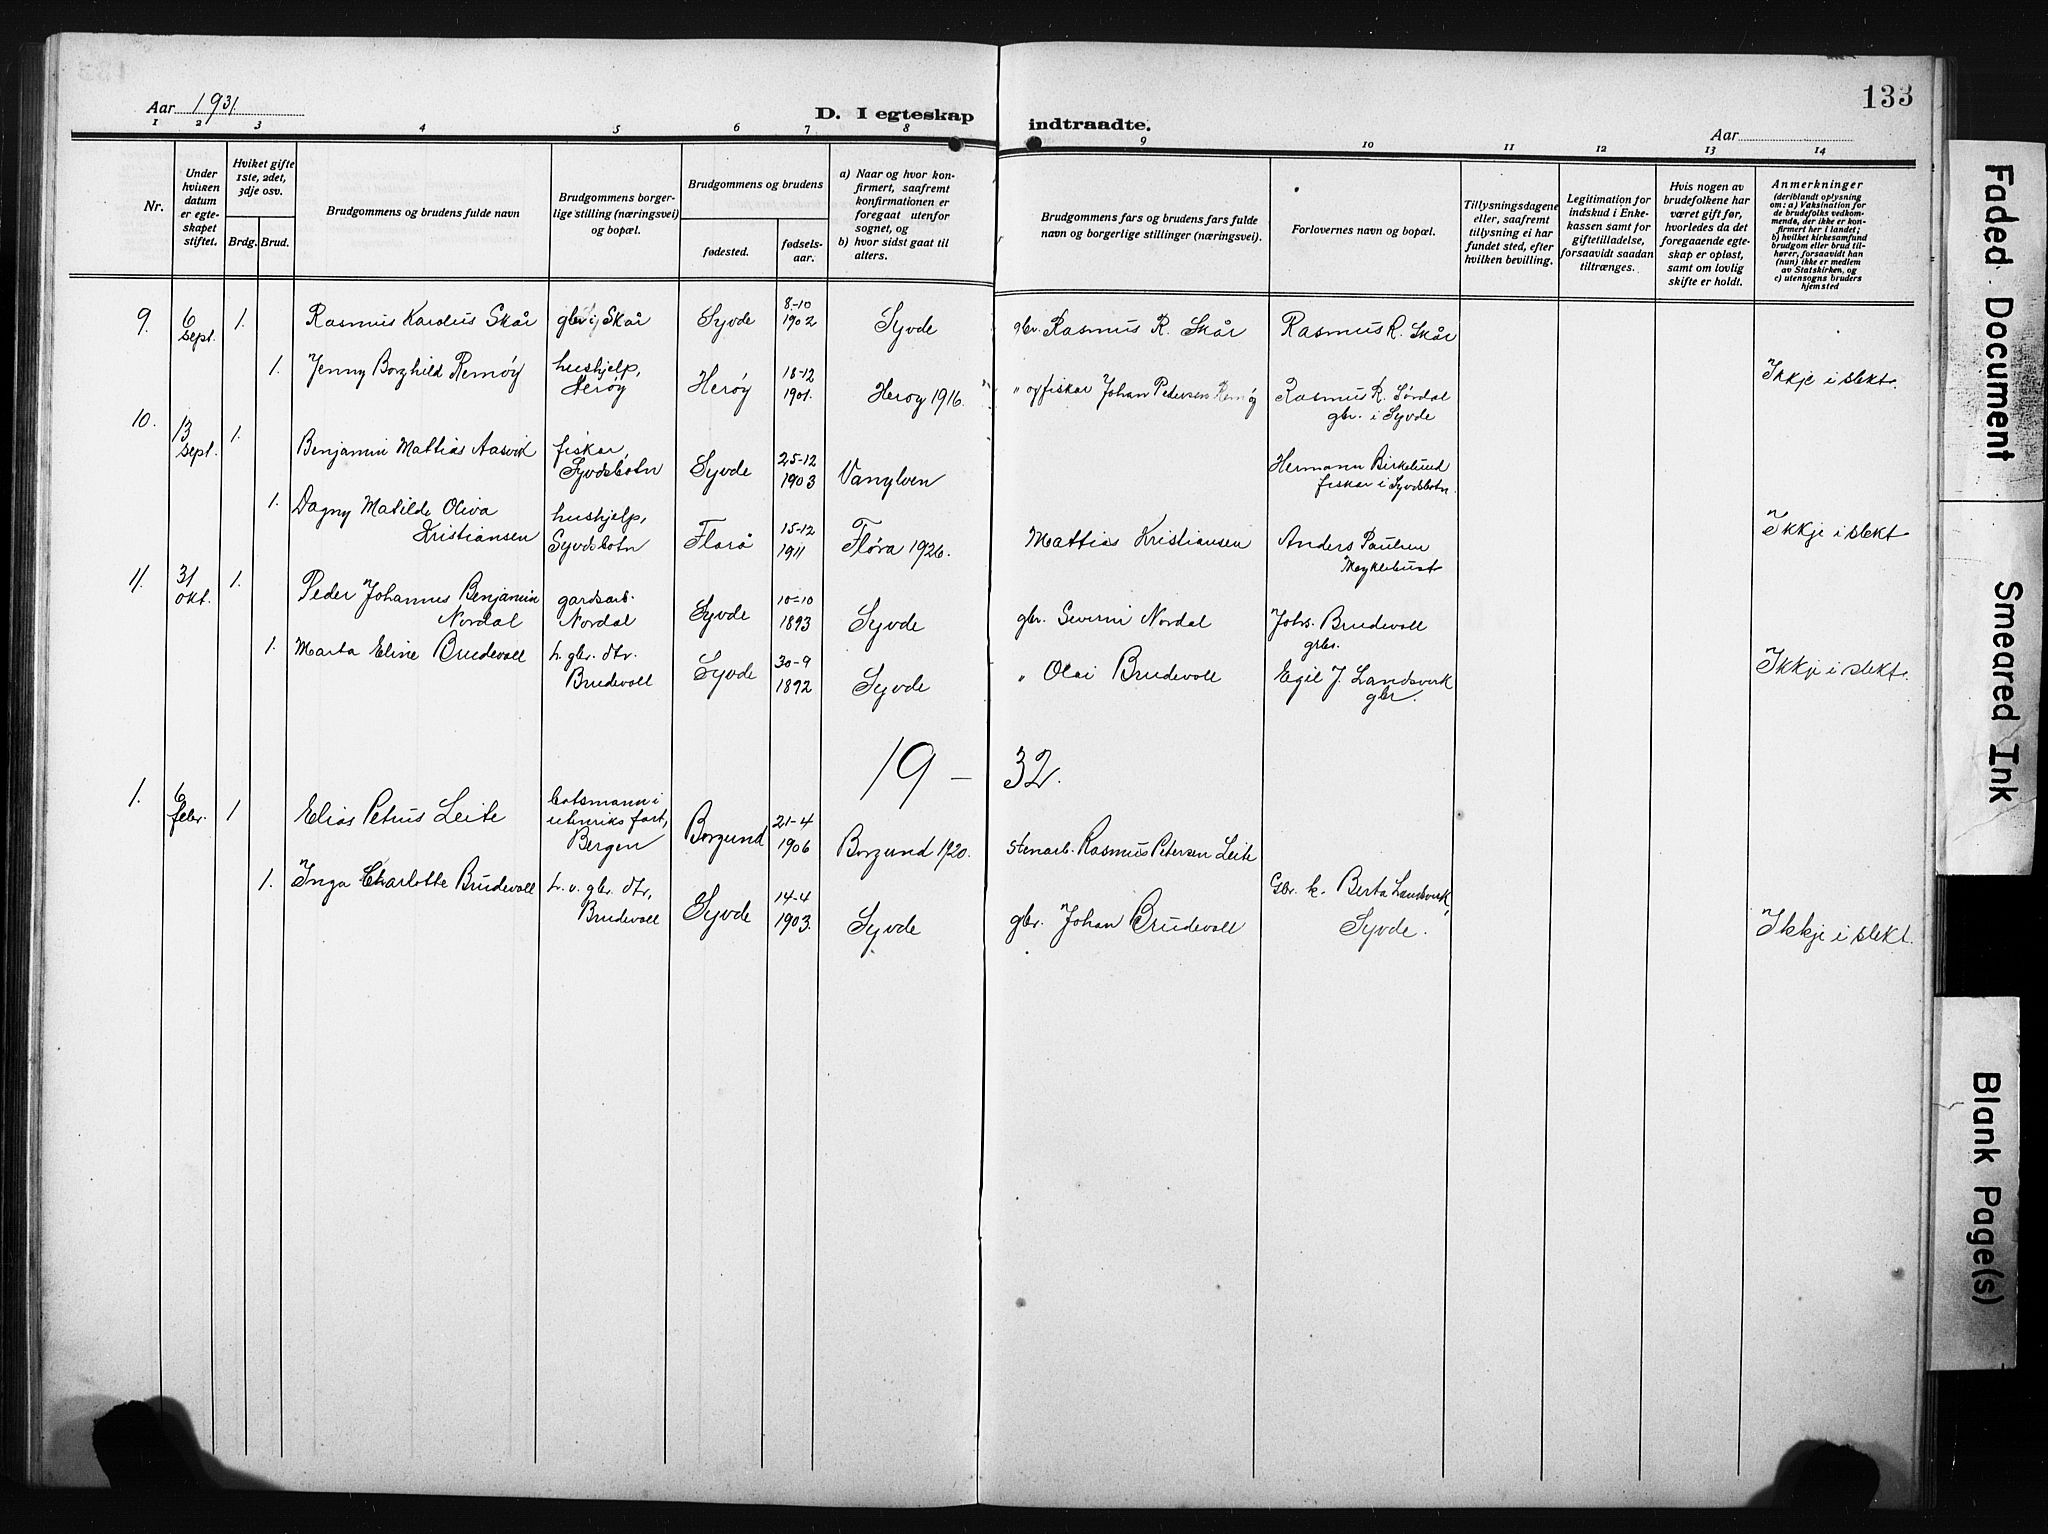 133
Aar 1931.
D. I egteskap indtraadte.
Aar
1 2 3 4 5 6 7 8 9 10 11 12 13 14
Nr.
Under hvilken datum er egteskapet stiftet.
Hvilket gifte 1ste, 2det, 3dje osv.
Brdg. Brud.
Brudgommens og brudens fulde navn
Brudgommens borgerlige stilling (næringsvei) og bopæl.
Brudgommens og brudens
fødested.
fødselsaar.
a) Naar og hvor konfirmert, saafremt konfirmationen er foregaat utenfor sognet, og
b) hvor sidst gaat til alters.
Brudgommens fars og brudens fars fulde navn og borgerlige stillinger (næringsvei).
Forlovernes navn og bopæl.
Tillysningsdagene eller, saafremt tillysning ei har fundet sted, efter hvilken bevilling.
Legitimation for indskud i Enkekassen samt for giftetilladelse, forsaavidt saadan tiltrænges.
Hvis nogen av brudefolkene har været gift før, hvorledes da det foregaaende egteskap er opløst, samt om lovlig skifte er holdt.
Anmerkninger (deriblandt oplysning om: a) Vaksination for de brudefolks vedkommende, der ikke er konfirmert her i landet; b) hvilket kirkesamfund brudgom eller brud tilhører, forsaavidt han (hun) ikke er medlem av Statskirken, og c) utensogns bruders hjemsted
9. 6 sept. 1. Rasmus Karolus Skår gbr i Skår Syvde 8-10 1902 Syvde gbr. Rasmus R. Skår Rasmus R. Skår
1. Jenny Borghild Remøy hushjelp, Herøy Herøy 18-12 1901. Herøy 1916. " og fiskar Johan Pedersen Remøy Rasmus R. Sørdal gbr. i Syvde Ikkje i slekt.
10. 13 sept. 1. Benjamin Mattias Aasvik fiskar, Syvdsbotn Syvde 25-12 1903 Vanylven Hermann Birkelund fiskar i Syvdsbotn.
1. Dagny Matilde Oliva Kristiansen hushjelp, Syvdsbotn Florø 15-12 1911 Florø 1926. Mattias Kristiansen Anders Paulsen Myklebust Ikkje i slekt
11. 31 okt. 1. Peder Johannes Benjamin Nordal gardsarb. Nordal Syvde 10-10 1893 Syvde gbr. Severin Nordal Johs. Brudevoll gbr.
1. Marta Eline Brudevoll h. gbr. dtr. Brudevoll Syvde 30-9 1892 Syvde " Olai Brudevoll Egil J Landsverk gbr. Ikkje i slekt.
19 - 32.
1. 6 febr. 1 Elias Petrus Leite batsmann i utenriks fart, Bergen Borgund 21-4 1906 Borgund 1920. stenarb. Rasmus Petersen Leite
1. Inga Charlotte Brudevoll h. v. gbr. dtr, Brudevoll Syvde 14-4 1903. Syvde gbr. Johan Brudevoll Gbr. k. Berta Landsverk, Syvde. Ikkje i slekt.
Faded Document
Smeared Ink
Blank Page(s)